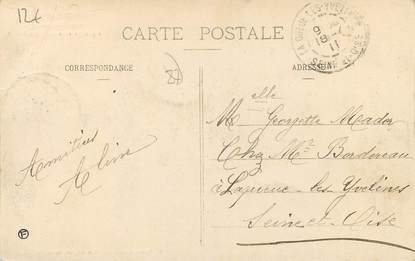 12€
CARTE POSTALE
CORRESPONDANCE
ADRESSE
LA QUEUE-LES-YVELINES
SEINE-ET-OISE
Amitiés
Aline
Melle Georgette Mador
Chez Mr Bordereau
à Laqueue-les Yvelines
Seine et Oise